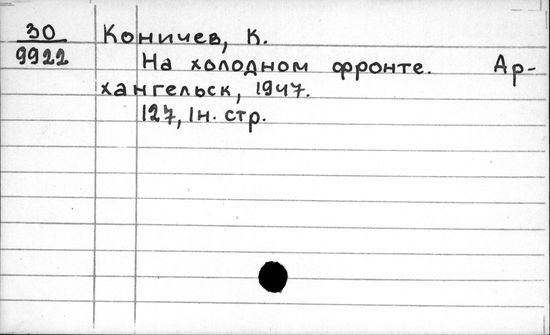 30
9922
Коничев, К.
На холодном фронте. Ар-
хангельск, 1947.
127, 1н. стр.